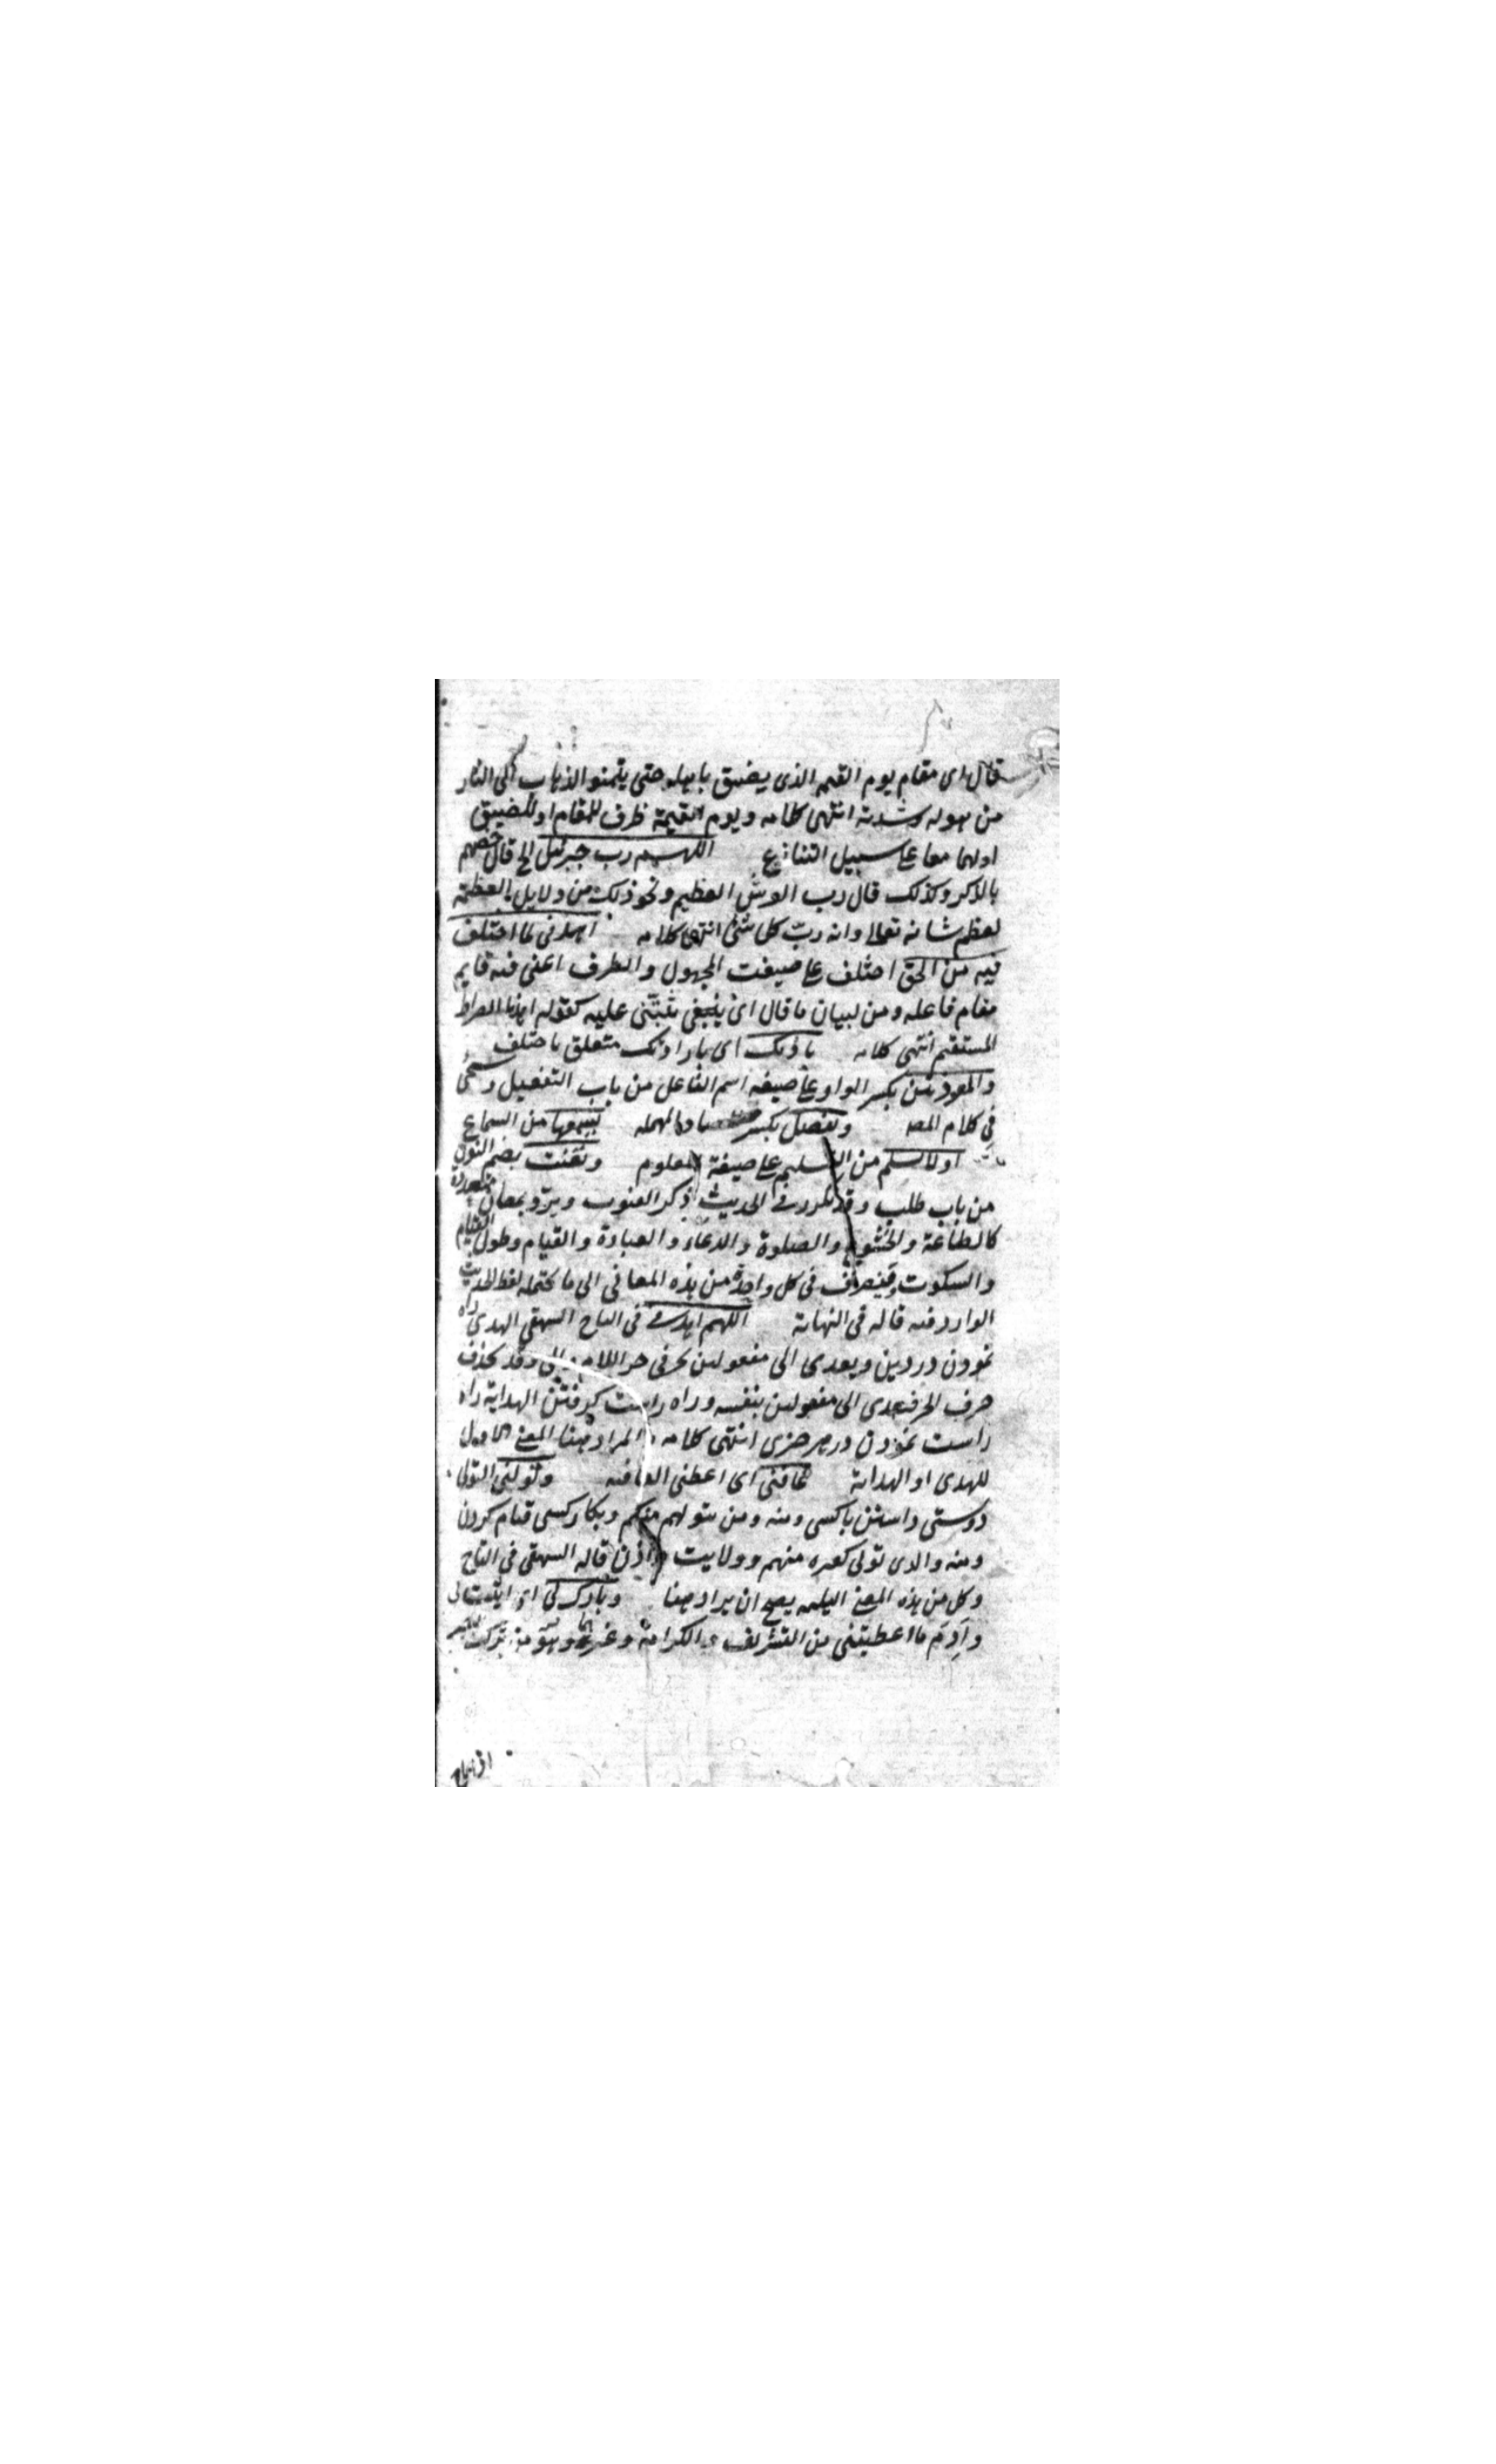 قال اى مقام يوم القيمه الذى يضيق باهله حتى يتمنو الذهاب الى النار
من هوله وشدته انتهى كلامه ويوم القيمة ظرف للمقام او للضيق
اولهما معا على سبيل التنازع اللهم رب جبرئيل الخ قال خصهم
بالذكر وكذلك قال رب العرش العظيم ونحو ذلك من دلايل العظمة
لعظم شانه تعالى وانه ربّ كل شئ انتهى كلامه اهدنى لما اختلف
فيه من الحق اختلف على صيغت المجهول والظرف اعنى فيه قايم
مقام فاعله ومن لبيان ما قال اى ثبتنى عليه كقوله اهدنا الصراط
المستقيم انتهى كلامه باذنك اى بارادتك متعلق باختلف
والمعوذتين بكسر الواو على صيغه اسم الفاعل من باب التفعيل وسيجئ
فى كلام المصـ ويفصل بكسر صاد المهمله يسمعها من السماع
اولا يسلم من التسليم على صيغة المعلوم ونقنت بضم النون
من باب طلب وقد تكرر فى الحديث ذكر القنوت ويرد بمعان متعددة
كالطاعة والخشوع والصلوة والدعاء والعبادة والقيام وطول القيام
والسكوت فينصرف فى كل واحدة من هذه المعانى الى ما يحتمله لفظ الحديث
الوارد فيه قاله فى النهاية اللهم اهدنى فى التاج البيهقى الهدى راه
نمودن در دين ويعدى الى مفعولين بحرفى جر اللام والى وقد يحذف
حرف الجر فيعدى الى مفعولين بنفسه وراه راست گرفتن الهداية راه
راست نمودن در هر چيزى انتهى كلامه والمراد ههنا المعنى الاول
للهدى او الهداية عافنى اى اعطنى العافيه وتولنى التولى
دوستى داشتن باكسى ومنه ومن يتولهم منكم وبكار كسى قيام كردن
ومنه والذى تولى كبره منهم وولايت قاله البيهقى فى التاج
وكل من هذه المعنى يصح ان يراد ههنا وبارك لى اى اثبت لى
وأدِم ما اعطيتنى من التشريف والكرامة وغيرهما وهو من برك البعير